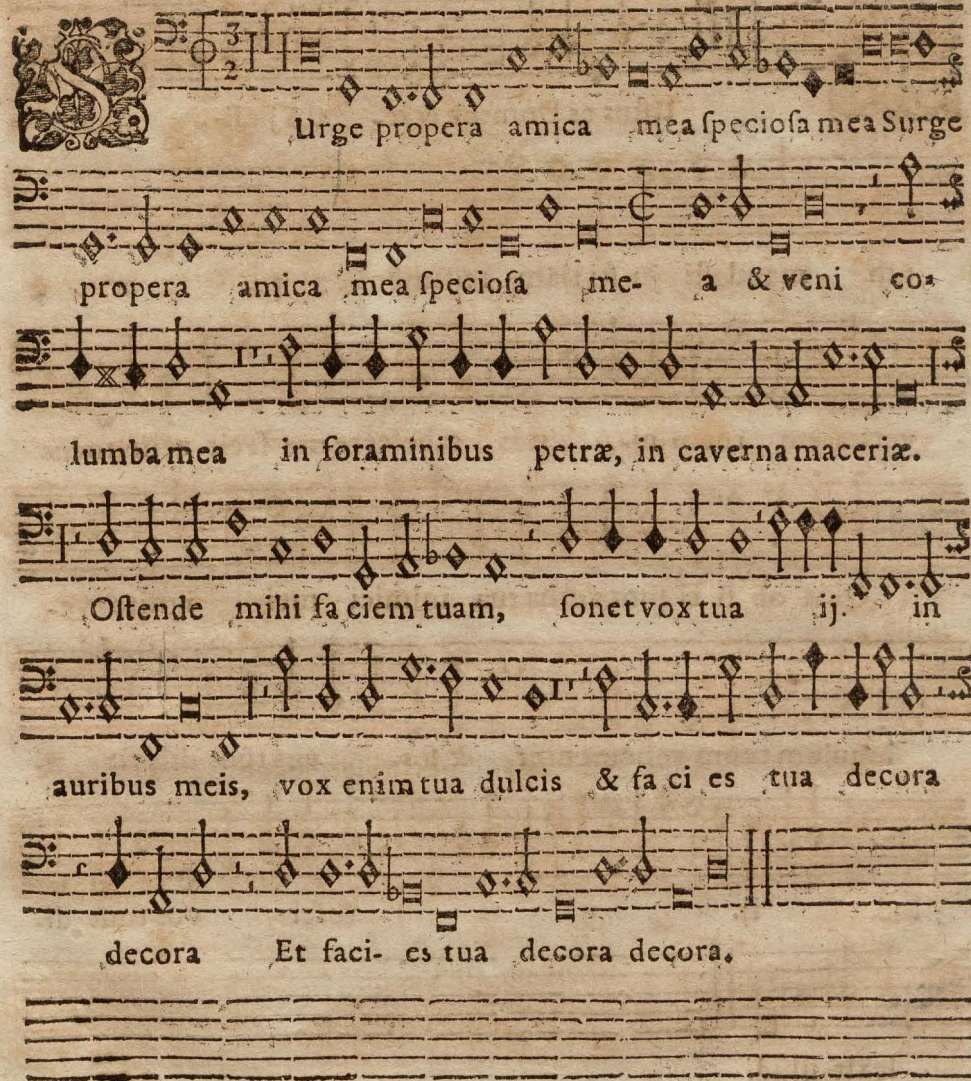 SUrge propera amica mea ſpecioſa mea Surge
propera amica mea ſpecioſa me- a & veni co-
lumba mea in foraminibus petræ, in caverna maceriæ.
Oſtende mihi faciem tuam, ſonet vox tua ij. in
auribus meis, vox enim tua dulcis & fa ci es tua decora
decora Et faci- es tua decora decora.